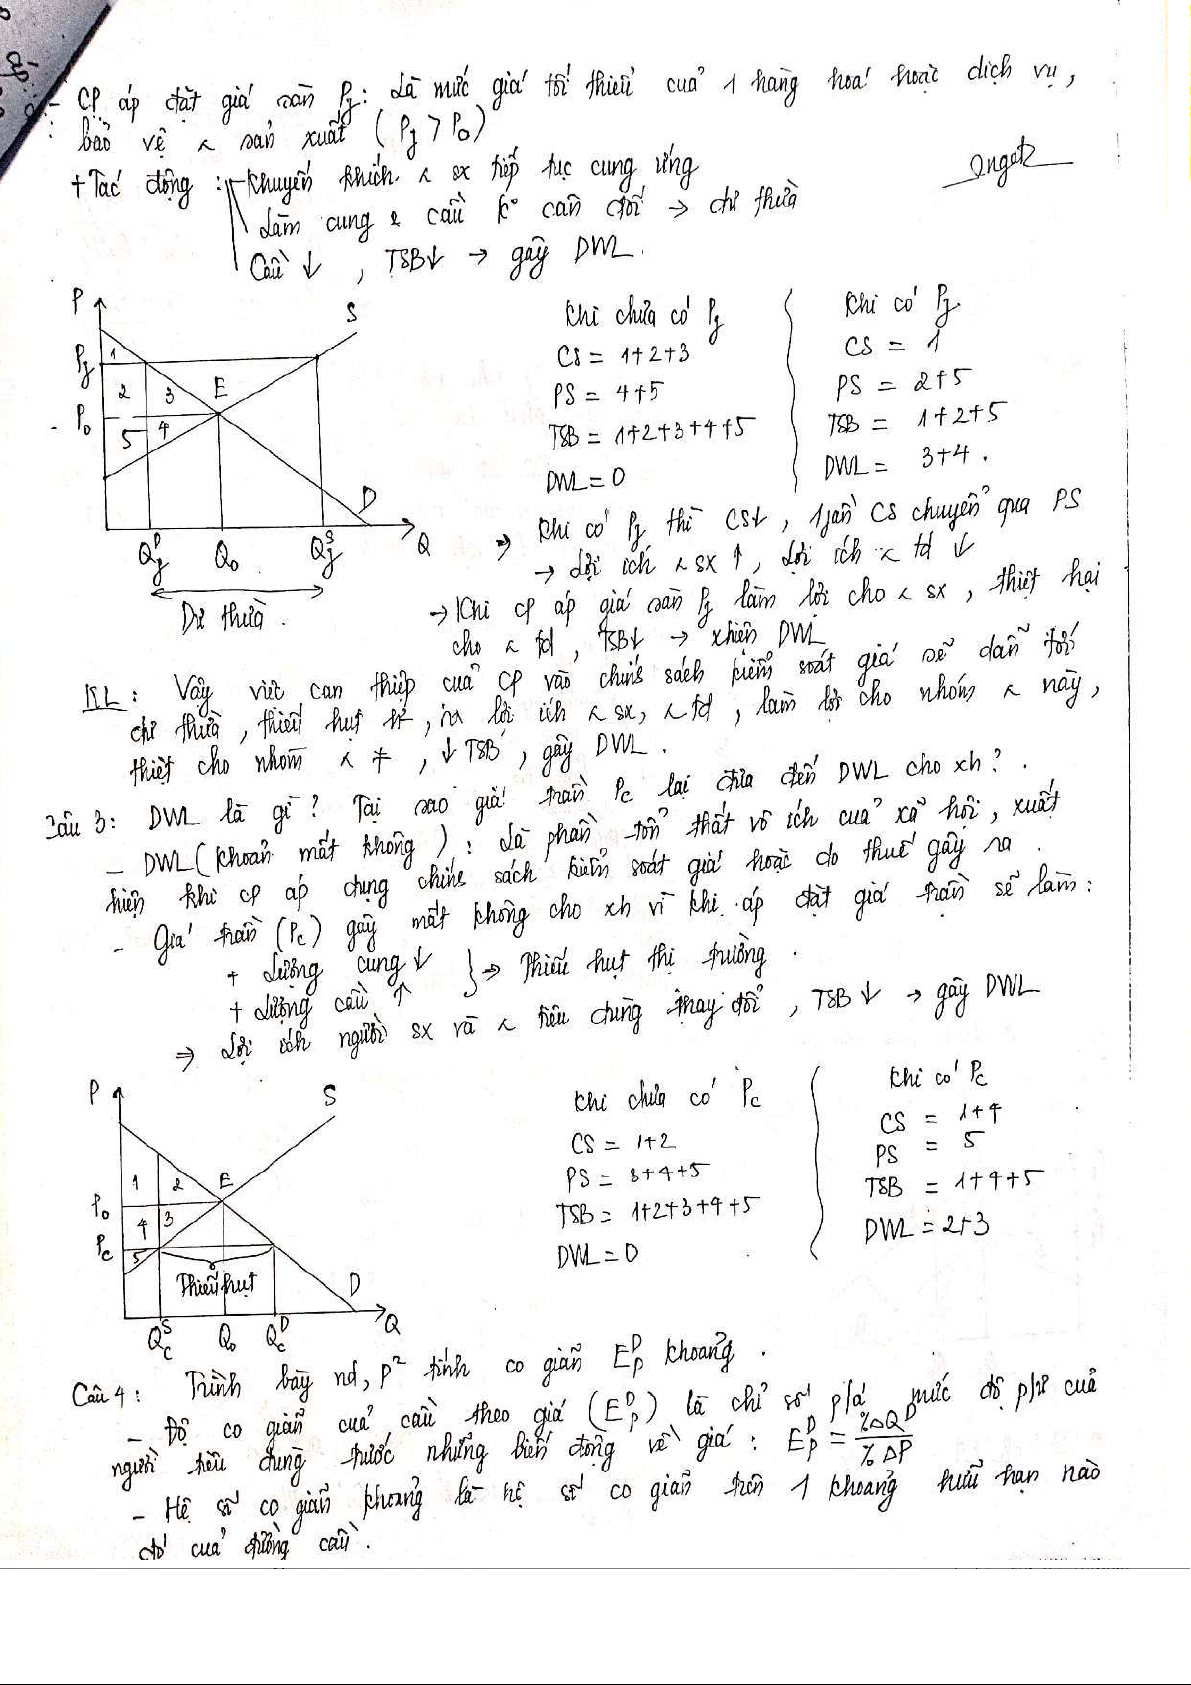 - CP áp đặt giá sàn Pf: Là mức giá tối thiểu của 1 hàng hoá hoặc dịch vụ,
bảo vệ < sản xuất (Pf > P0)
+ Tác động : Khuyến khích < sx tiếp tục cung ứng
Làm cung & cầu k° cân đối → dư thừa
Cầu ↓ , TSB↓ → gây DWL.
P
S
Pf
1
2
3
E
P0
5
4
D
Q
QfD
Q0
QfS
Dư thừa.
Khi chưa có Pf
CS = 1+2+3
PS = 4+5
TSB = 1+2+3+4+5
DWL = 0
Khi có Pf
CS = 1
PS = 2+5
TSB = 1+2+5
DWL = 3+4.
⇒ Khi có Pf thì CS↓, 1 phần CS chuyển qua PS
→ Lợi ích < sx ↑, Lợi ích < td ↓
→ Khi CP áp giá sàn Pf làm lợi cho < sx, thiệt hại
cho < td, TSB↓ → xhiện DWL
KL: Vậy việc can thiệp của CP vào chính sách kiểm soát giá sẽ dẫn tới
dư thừa, thiếu hụt lợi ích < sx, < td, làm lợi cho nhóm < này,
thiệt cho nhóm < ≠, ↓TSB, gây DWL.
Câu 3: DWL là gì? Tại sao giá trần Pc lại đưa đến DWL cho xh?.
- DWL (khoản mất không): Là phần tổn thất vô ích của xã hội, xuất
hiện khi CP áp dụng chính sách kiểm soát giá hoặc do thuế gây ra.
- Giá trần (Pc) gây mất không cho xh vì khi áp đặt giá trần sẽ làm:
+ Lượng cung ↓
+ Lượng cầu ↑
} ⇒ Thiếu hụt thị trường.
⇒ Lợi ích người sx và < tiêu dùng thay đổi, TSB↓ → gây DWL
P
S
1
2
E
P0
4
3
Pc
5
Thiếu hụt
D
Q
QcS
Q0
QcD
Khi chưa có Pc
CS = 1+2
PS = 3+4+5
TSB = 1+2+3+4+5
DWL = 0
Khi có Pc
CS = 1+4
PS = 5
TSB = 1+4+5
DWL = 2+3
Câu 4: Trình bày nd, p² tính co giãn EPD khoảng.
- Độ co giãn của cầu theo giá (EPD) là chỉ số p/á mức độ p/ư của
người tiêu dùng trước những biến động về giá: EPD = %ΔQD / %ΔP
- Hệ số co giãn khoảng là hệ số co giãn trên 1 khoảng hữu hạn nào
đó của đường cầu.